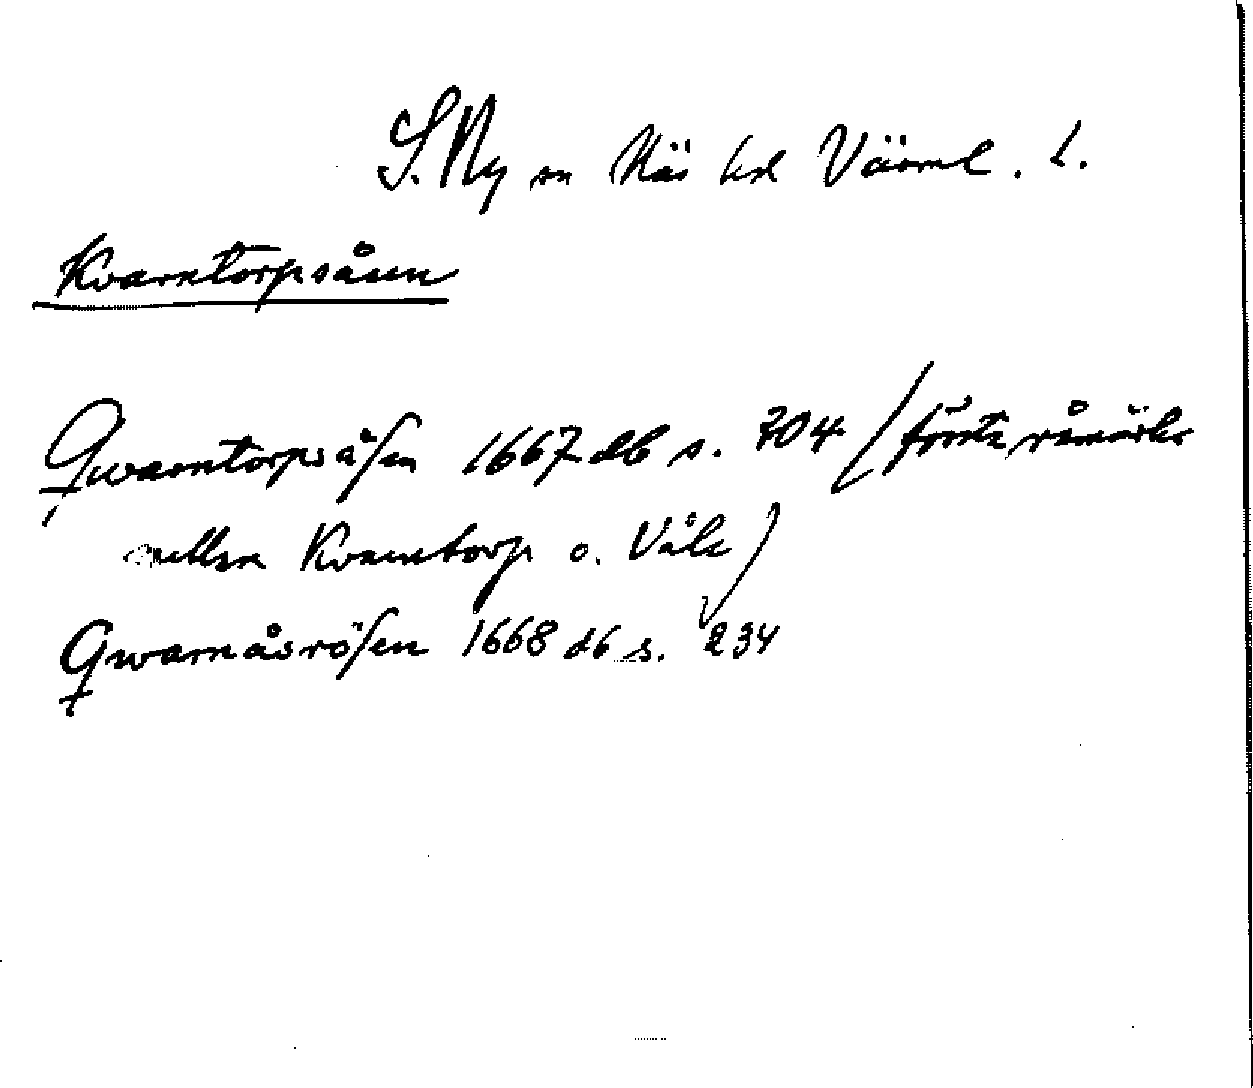 S. Ny sn Näs hd Värml. l.
Kvarntorpsåsen
Qwarntorpsåsen 1667 db s. 704 (första råmärke
mellan Kvarntorp o. Våle)
Qwarnåsrösen 1668 db s. 234